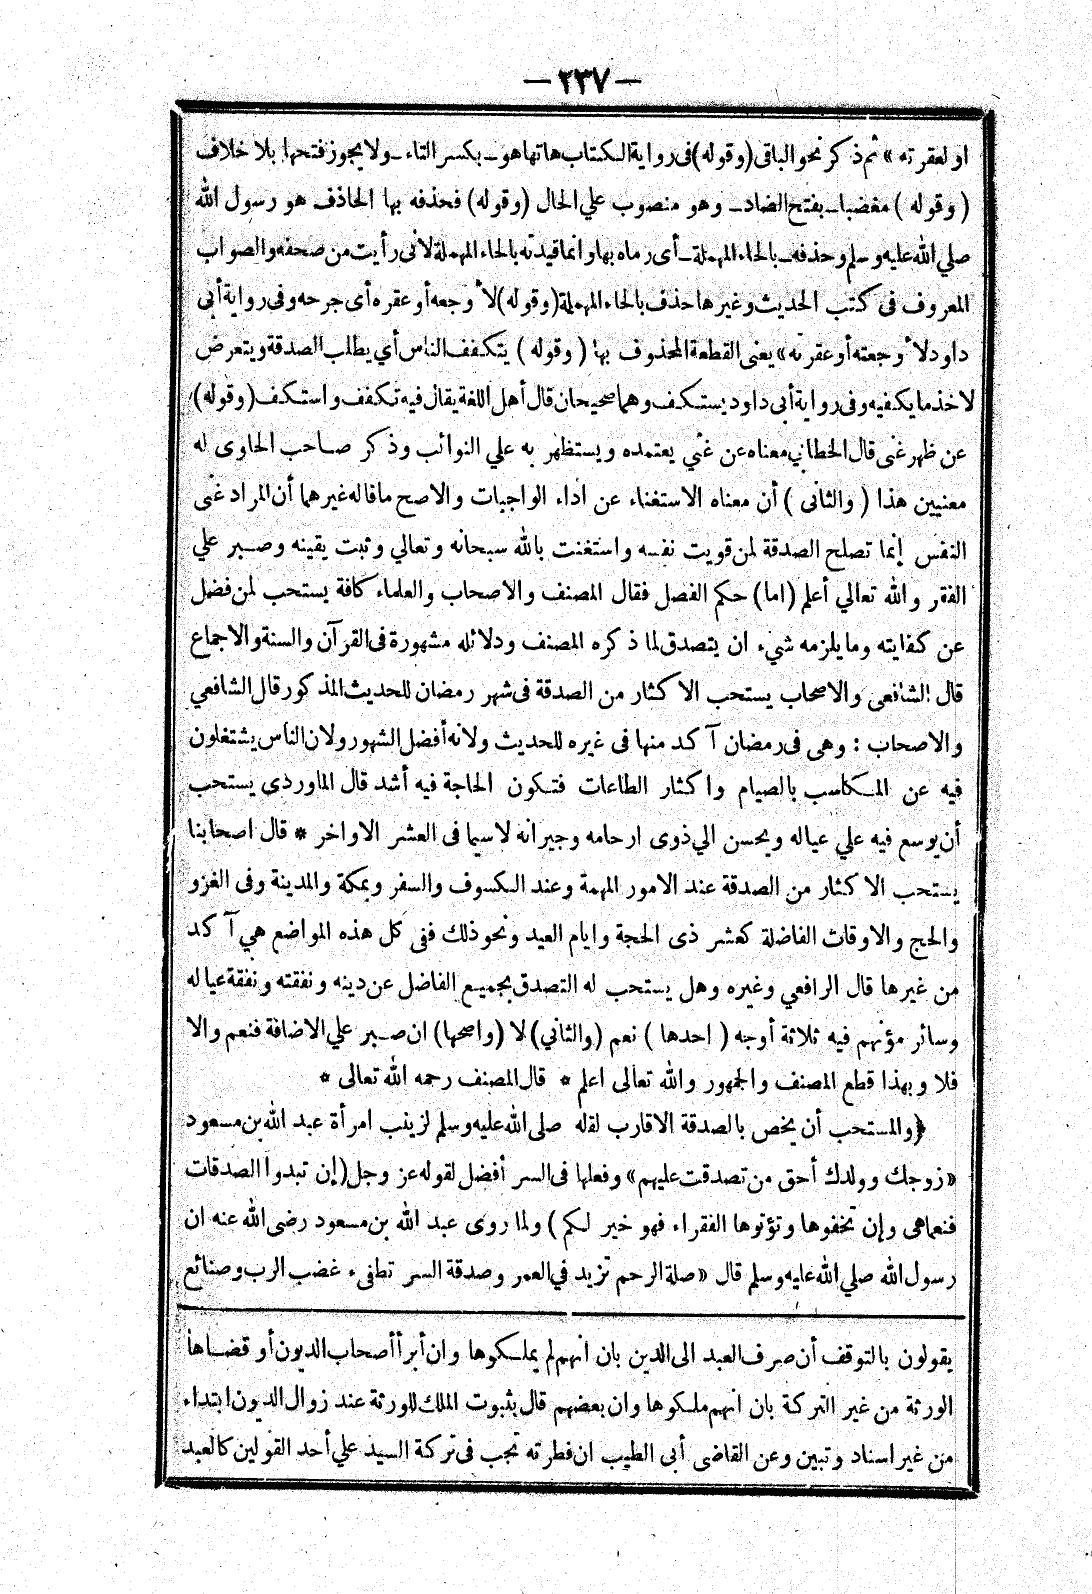 — ٢٣٧ —
او لعقرته » ثم ذكر نحو الباقى (وقوله) فى رواية الكتاب هاتها هو ـ بكسر التاء ـ ولا يجوز فتحها بلا خلاف
( وقوله ) مغضبا ـ بفتح الضاد ـ وهو منصوب علي الحال (وقوله) فحذفه بها الحاذف هو رسول الله
صلي الله عليه وسلم وحذفه ـ بالحاء المهملة ـ أى رماه بها وانما قيدته بالحاء المهملة لانى رأيت من صحفه والصواب
المعروف فى كتب الحديث وغيرها حذف بالحاء المهملة (وقوله) لأوجعه أو عقره أى جرحه وفى رواية أبى
داود لأوجعته أو عقرته » يعنى القطعة المحذوف بها ( وقوله ) يتكفف الناس أي يطلب الصدقة ويتعرض
لاخذ ما يكفيه وفى رواية أبى داود يستكف وهما صحيحان قال أهل اللغة يقال فيه تكفف واستكف (وقوله)
عن ظهر غنى قال الخطابي معناه عن غني يعتمده ويستظهر به علي النوائب وذكر صاحب الحاوى له
معنيين هذا ( والثانى ) أن معناه الاستغناء عن اداء الواجبات والاصح ما قاله غيرهما أن المراد غنى
النفس إنما تصلح الصدقة لمن قويت نفسه واستغنت بالله سبحانه وتعالي وثبت يقينه وصبر علي
الفقر والله تعالي أعلم (اما) حكم الفصل فقال المصنف والاصحاب والعلماء كافة يستحب لمن فضل
عن كفايته وما يلزمه شيء ان يتصدق لما ذكره المصنف ودلائله مشهورة فى القرآن والسنة والاجماع
قال الشافعى والاصحاب يستحب الاكثار من الصدقة فى شهر رمضان للحديث المذكور قال الشافعي
والاصحاب : وهى فى رمضان آكد منها فى غيره للحديث ولانه أفضل الشهور ولان الناس يشتغلون
فيه عن المكاسب بالصيام واكثار الطاعات فتكون الحاجة فيه أشد قال الماوردى يستحب
أن يوسع فيه علي عياله ويحسن الي ذوى ارحامه وجيرانه لا سيما فى العشر الاواخر * قال اصحابنا
يستحب الاكثار من الصدقة عند الامور المهمة وعند الكسوف والسفر وبمكة والمدينة وفى الغزو
والحج والاوقات الفاضلة كعشر ذى الحجة وايام العيد ونحو ذلك ففى كل هذه المواضع هي آكد
من غيرها قال الرافعي وغيره وهل يستحب له التصدق بجميع الفاضل عن دينه ونفقته ونفقة عياله
وسائر مؤنهم فيه ثلاثة أوجه ( احدها ) نعم (والثاني) لا (واصحها) ان صبر علي الاضافة فنعم والا
فلا وبهذا قطع المصنف والجمهور والله تعالى اعلم * قال المصنف رحمه الله تعالى *
﴿والمستحب أن يخص بالصدقة الاقارب لقله صلى الله عليه وسلم لزينب امرأة عبد الله بن مسعود
« زوجك وولدك أحق من تصدقت عليهم» وفعلها فى السر أفضل لقوله عز وجل (إن تبدوا الصدقات
فنعما هى وإن تخفوها وتؤتوها الفقراء فهو خير لكم ) ولما روى عبد الله بن مسعود رضى الله عنه ان
رسول الله صلي الله عليه وسلم قال « صلة الرحم تزيد في العمر وصدقة السر تطفىء غضب الرب وصنائع
يقولون بالتوقف أن صرف العبد الى الدين بان انهم لم يملكوها وان أبرأ أصحاب الديون أو قضاها
الورثة من غير التركة بان انهم ملكوها وان بعضهم قال بثبوت الملك للورثة عند زوال الديون ابتداء
من غير اسناد وتبين وعن القاضى أبى الطيب ان فطرته تجب فى تركة السيد علي أحد القولين كالعبد